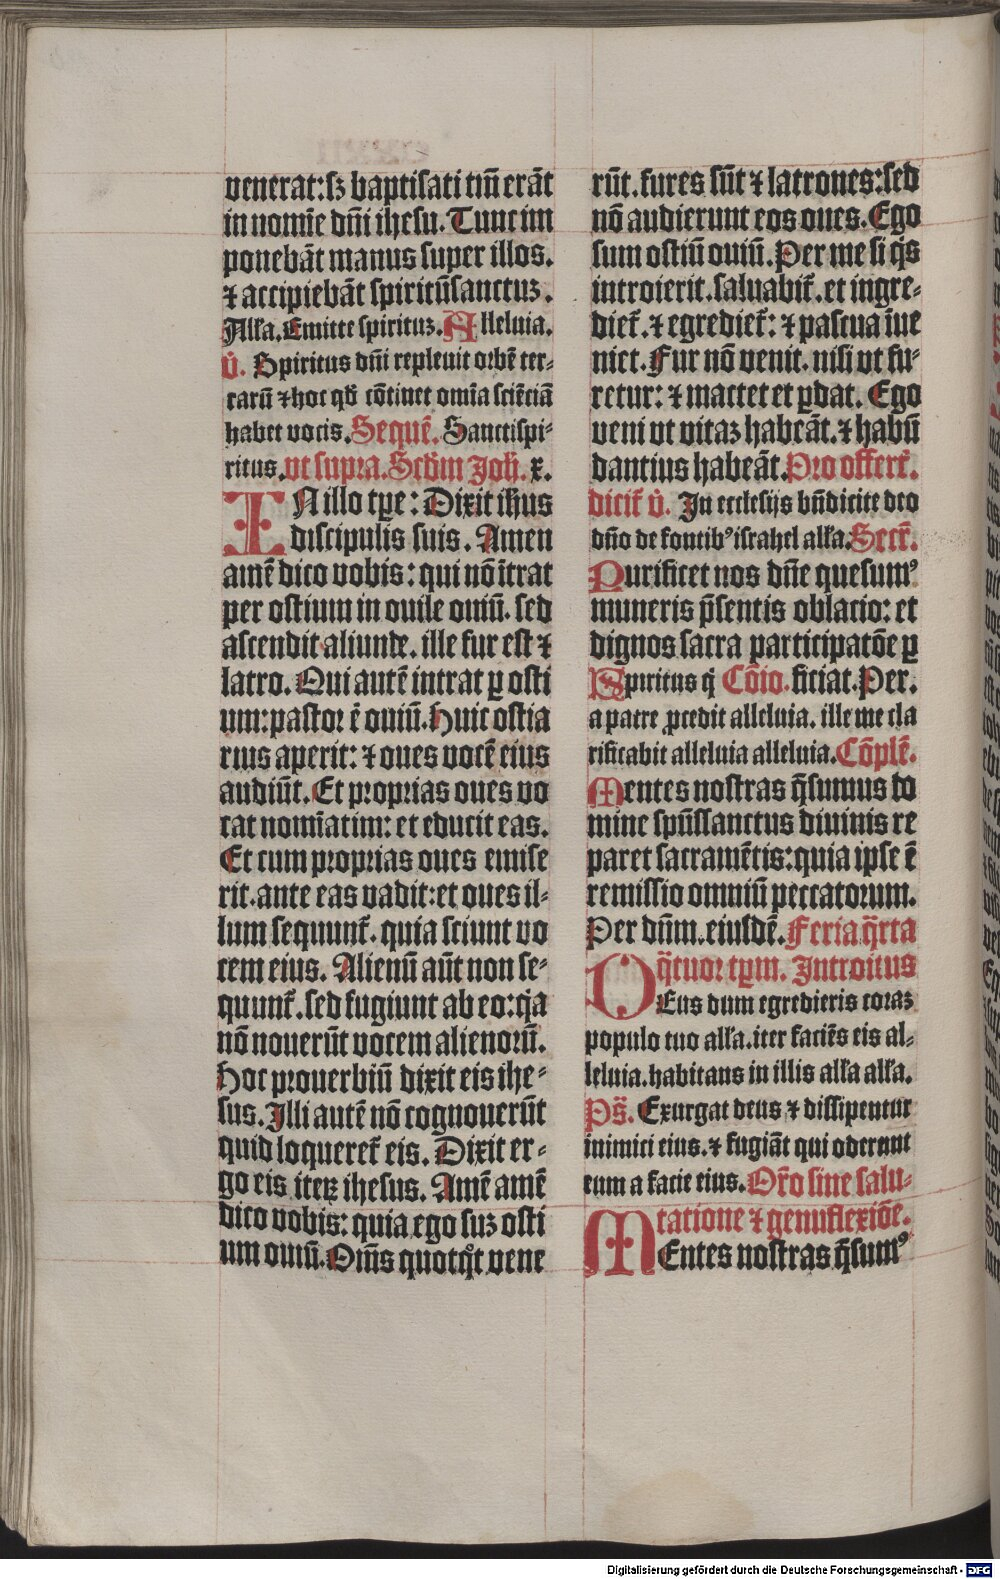 venerat: sꝫ baptisati tm̄ erāt
in nomīe dn̄i ihesu. Tunc im
ponebāt manus super illos.
⁊ accipiebāt spiritūsanctuꝫ.
Alla. Emitte spirituꝫ. Alleluia.
v̄. Spiritus dn̄i repleuit orbē ter-
rarū ⁊ hoc qd̄ cōtinet omīa sciēciā
habet vocis. Sequē. Sanctispi-
ritus. vt supra. Scd̄m Joh̄. x.
IN illo tꝑe: Dixit ih̄us
discipulis suis. Amen
amē dico vobis: qui nō ītrat
per ostium in ouile ouiū. sed
ascendit aliunde. ille fur est ⁊
latro. Qui autē intrat ꝑ osti
um: pastor ē ouiū. Huic ostia
rius aperit: ⁊ oues vocē eius
audiūt. Et proprias oues vo
cat nomīatim: et educit eas.
Et cum proprias oues emise
rit. ante eas vadit: et oues il-
lum sequunt᷑. quia sciunt vo
cem eius. Alienū aūt non se-
quunt᷑. sed fugiunt ab eo: q̓a
nō nouerūt vocem alienorū.
Hoc prouerbiū dixit eis ihe-
sus. Illi autē nō cognouerūt
quid loqueret᷑ eis. Dixit er-
go eis iteꝝ ihesus. Amē amē
dico vobis: quia ego suꝫ osti
um ouiū. Om̄s quotq̓t vene
rūt. fures sūt ⁊ latrones: sed
nō audierunt eos oues. Ego
sum ostiū ouiū. Per me si q̓s
introierit. saluabit᷑. et ingre-
diet᷑. ⁊ egrediet᷑: ⁊ pascua īue
niet. Fur nō venit. nisi vt fu-
retur: ⁊ mactet et ꝑdat. Ego
veni vt vitaꝫ habeāt. ⁊ habū
dantius habeāt. Pro offert᷑.
dicit᷑ v̄. In ecclesijs bn̄dicite deo
dn̄o de fontibꝰ israhel alla. Secr̄.
Purificet nos dn̄e quesumꝰ
muneris p̄sentis oblacio: et
dignos sacra participatōe ꝑ
Spiritus q̄ Cōio. ficiat. Per.
a patre ꝓcedit alleluia. ille me cla
rificabit alleluia alleluia. Cōplē.
Mentes nostras q̄sumus do
mine spūssanctus diuinis re
paret sacramētis: quia ipse ē
remissio omniū peccatorum.
Per dūm. eiusdē. Feria q̄rta
q̄tuor tꝑm. Introitus
DEus dum egredieris coraꝫ
populo tuo alla. iter faciēs eis al-
leluia. habitans in illis alla alla.
Ps̄. Exurgat deus ⁊ dissipentur
inimici eius. ⁊ fugiāt qui oderunt
eum a facie eius. Or̄o sine salu-
tatione ⁊ genuflexiōe.
MEntes nostras q̄sumꝰ
Digitalisierung gefördert durch die Deutsche Forschungsgemeinschaft - DFG